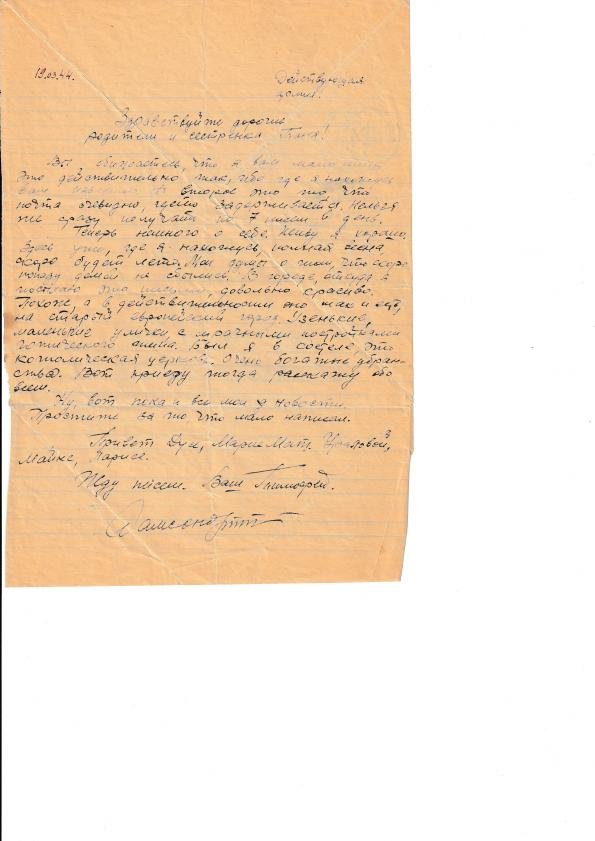 19.03.44.
Действующая
армия!
Здравствуйте дорогие
родители и сестренка Таня!
Вы обижаетесь что я вам мало
Это действительно так, ибо где я нахожусь
вам В второе это то, что
почта очевидно, задерживается. Нельзя
же сразу получать по 7 писем в день.
Теперь немного о себе. Живу я хорошо.
Здесь уже, где я нахожусь, полная весна
скоро будет лето. Мои о том, что скоро
приеду домой не сбылись. В городе, откуда я
посылаю это письмо, довольно красиво.
Похоже, а в действительности это так и есть,
на старый европейский город. Узенькие,
маленькие улички с мрачными постройками
готического стиля. Был я в костеле, это
католическая церковь. Очень богатые убран-
ства. Вот приеду тогда расскажу обо
всем.
Ну, вот пока и все мои новости.
Простите за то что мало написал.
Привет Дусе, Марие Мат.
Майке, Ларисе.
Жду писем. Ваш Тимофей.